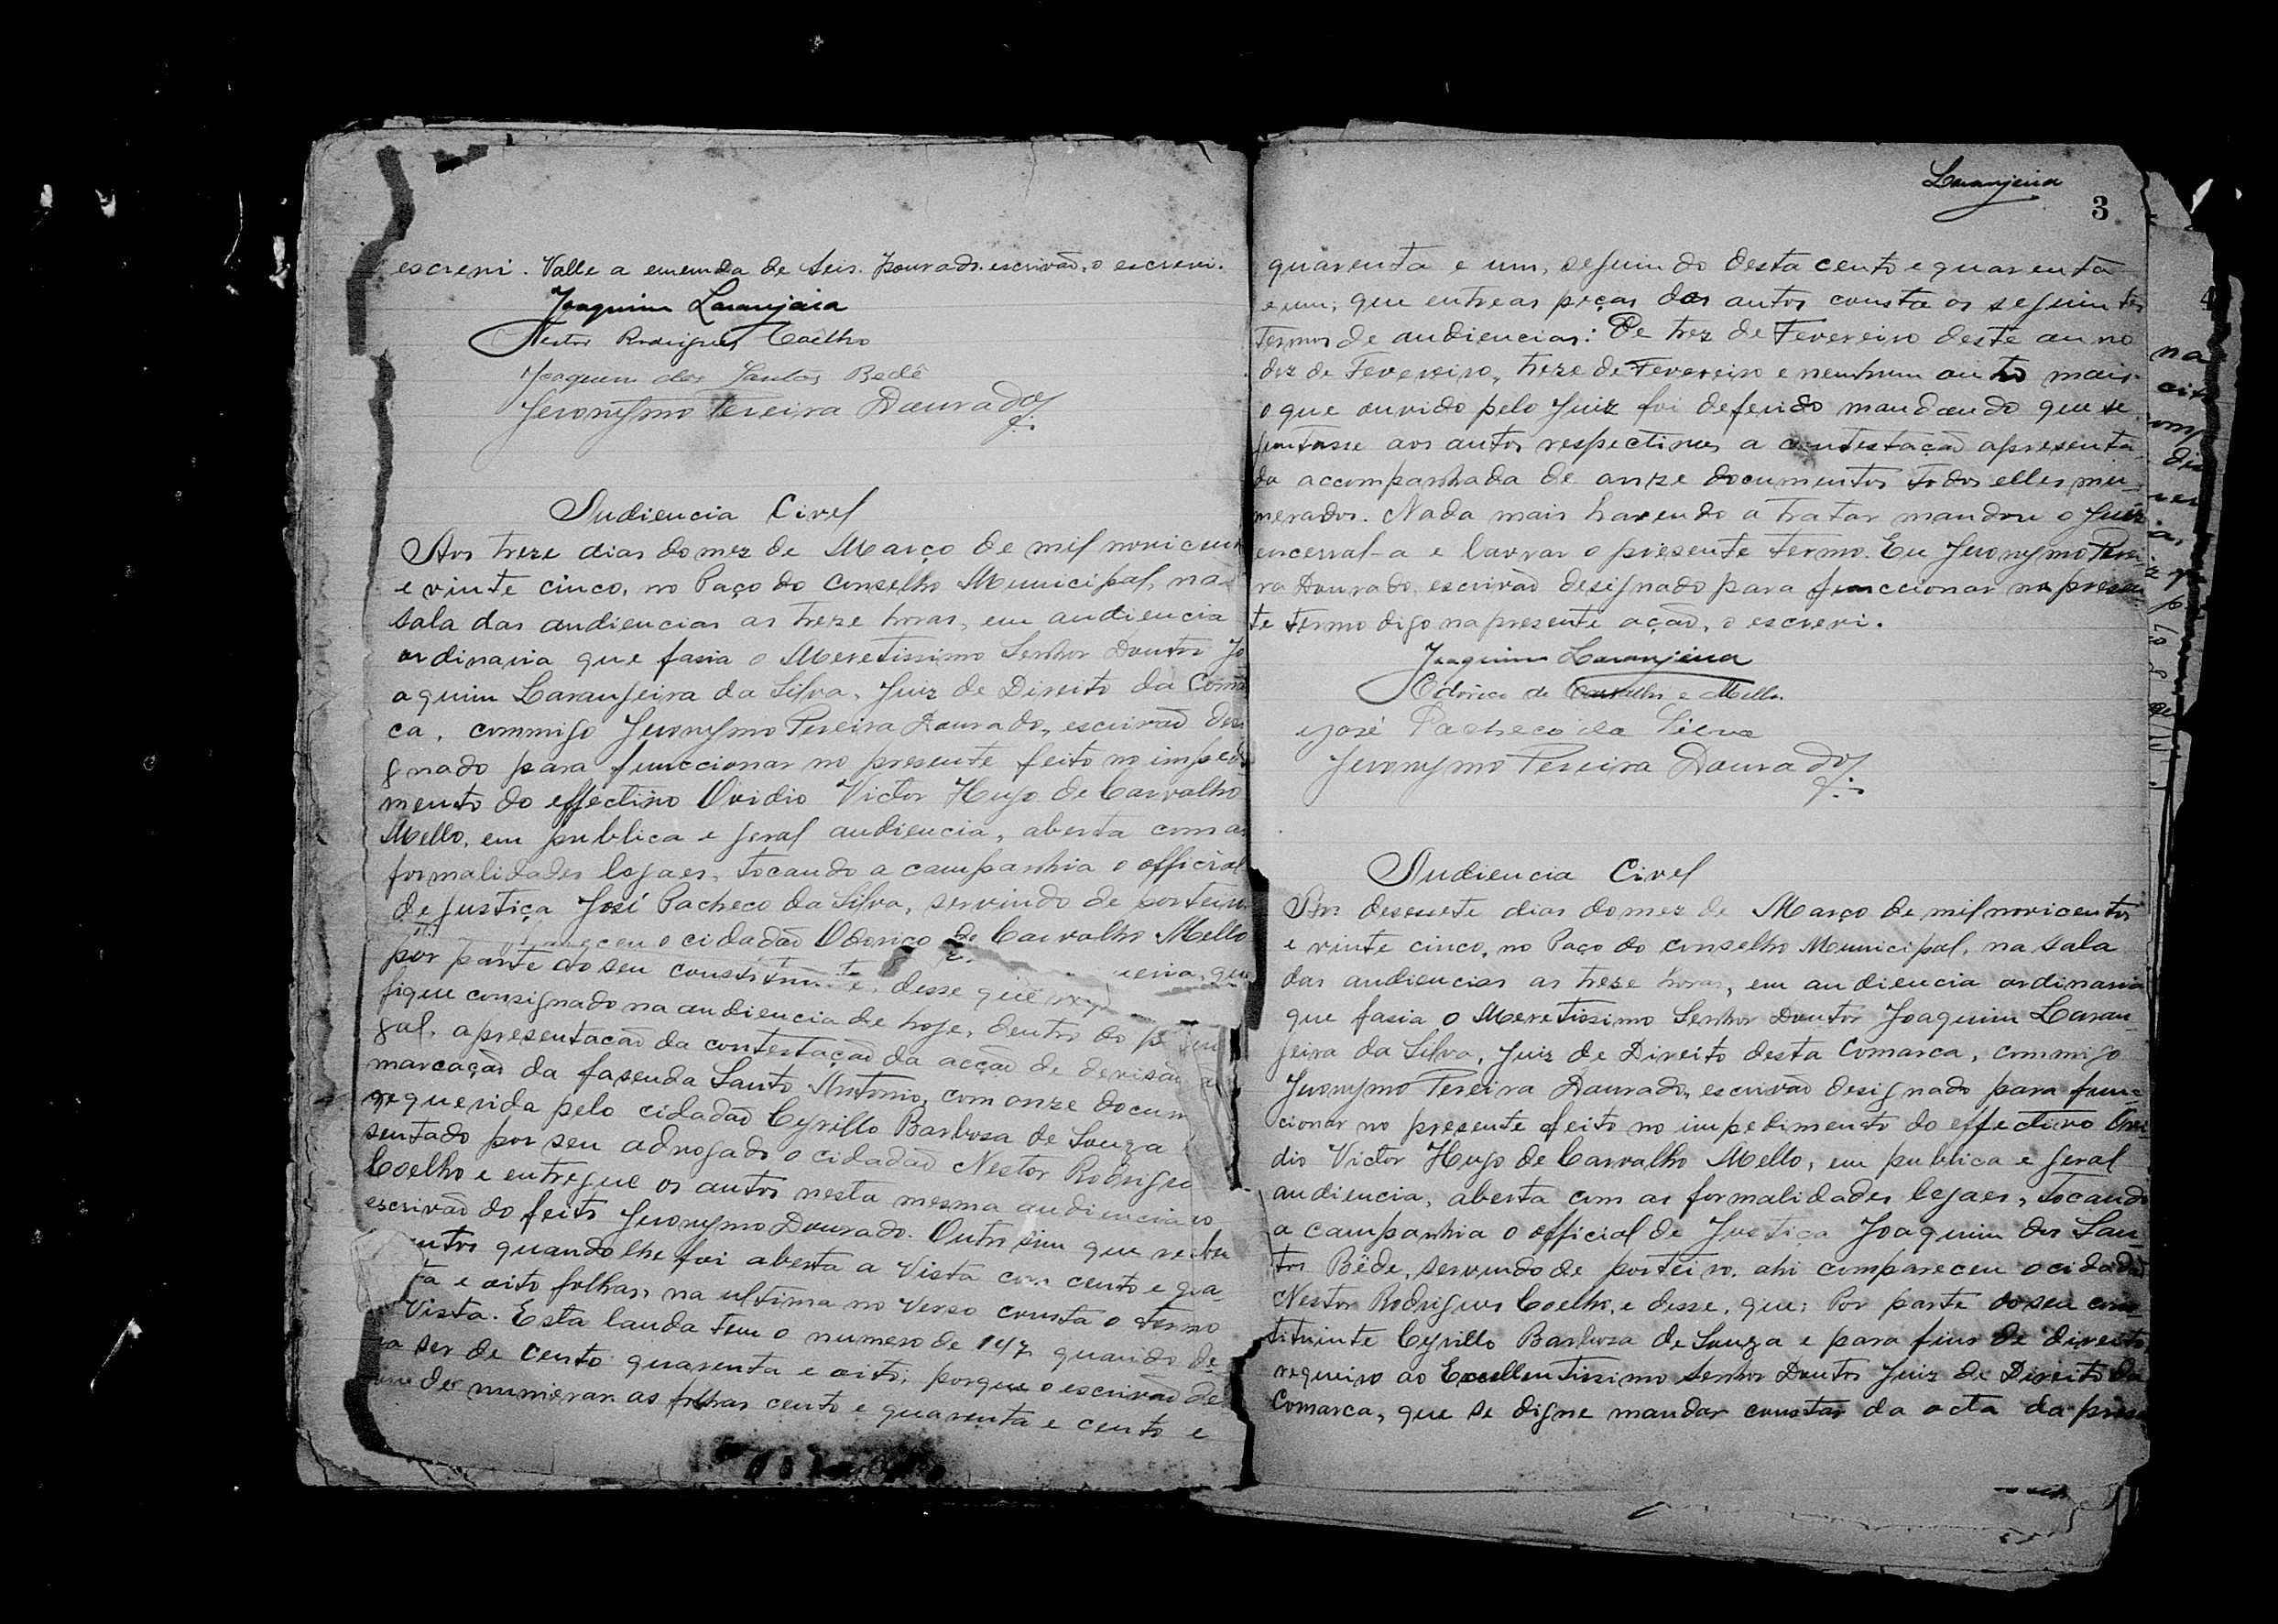 escrevi. Valle a emenda de Seis. Dourado. escrivão, o escrevi.
Joaquim Laranjeira
Nestor Rodrigues Coêlho
Joaquim dos Santos Bedê
Jeronymo Pereira Dourado
Audiencia Civel
Aos treze dias do mez de Março de mil novicen
e vinte cinco, no Paço do Conselho Municipal, na
sala das audiencias as treze horas, em audiencia
ordinaria que fasia o Meretissimo Senhor Doutor Jo
aquim Laranjeira da Silva, Juiz de Direito da Comar
ca, commigo Jeronymo Pereira Dourado, escrivão desi
gnado para funccionar no presente feito no impedi
mento do effectivo Ovidio Victor Hugo de Carvalho
Mello, em publica e geral audiencia, aberta com as
formalidades legaes, tocando a campanhia o official
de justiça José Pacheco da Silva, servindo de porteiro
o cidadão Odorico de Carvalho Mello
por parte do seu constituinte, disse que
fique consignado na audiencia de hoje, dentro do
gal, apresentação da contestação da acção de devisão
marcação da fasenda Santo Antonio, com onze docum
requerida pelo cidadão Cyrillo Barbosa de Souza
sentado por seu advogado o cidadão Nestor Rodrigu
Coelho e entregue os autos nesta mesma audiencia ao
escrivão do feito Jeronymo Dourado. Outro sim que recebeu
autos quando lhe foi aberta a Vista com cento e qua-
ta e oito folhas, na ultima no Verso consta o termo
Vista. Esta lauda tem o numero de 147 quando de
a ser de cento quarenta e oito, porque o escrivão de
de numerar as folhas cento e quarenta e cento e
Laranjeira
3
quarenta e um, seguindo desta cento e quarenta
e um; que entre as peças dos autos consta os seguintes
termos de audiencias: De trez de Fevereiro deste anno
dez de Fevereiro, treze de Fevereiro e nenhum outro mais
o que ouvido pelo Juiz foi deferido mandando que se
juntasse aos autos respectivos a contestação apresenta
da accompanhada de onze documentos todos elles nu-
merados. Nada mais havendo a tratar mandou o Juiz
encerral-a e lavrar o presente termo. Eu Jeronymo Perei
ra Dourado, escrivão designado para funccionar no presen
te termo digo na presente ação, o escrevi.
Joaquim Laranjeira
Odorico de Carvalho e Mello
José Pacheco da Silva
Jeronymo Pereira Dourado
Audiencia Civel
Aos desesete dias do mez de Março de mil novicentos
e vinte cinco, no Paço do conselho Municipal, na sala
das audiencias as treze horas, em audiencia ordinaria
que fasia o Meretissimo Senhor Doutor Joaquim Laran-
jeira da Silva, Juiz de Direito desta Comarca, commigo
Jeronymo Pereira Dourado, escrivão designado para func-
cionar no presente feito no impedimento do effectivo Ovi-
dio Victor Hugo de Carvalho Mello, em publica e geral
audiencia, aberta com as formalidades legaes, tocando
a campanhia o official de Justiça Joaquim dos San-
tos Bêde, servindo de porteiro, ahi compareceu o cidadão
Nestor Rodrigues Coelho, e disse, que: Por parte do seu cons-
tituinte Cyrillo Barbosa de Souza e para fins de direito,
requeiro ao Excellentissimo Senhor Doutor Juiz de Direito da
Comarca, que se digne mandar constar da acta da prese